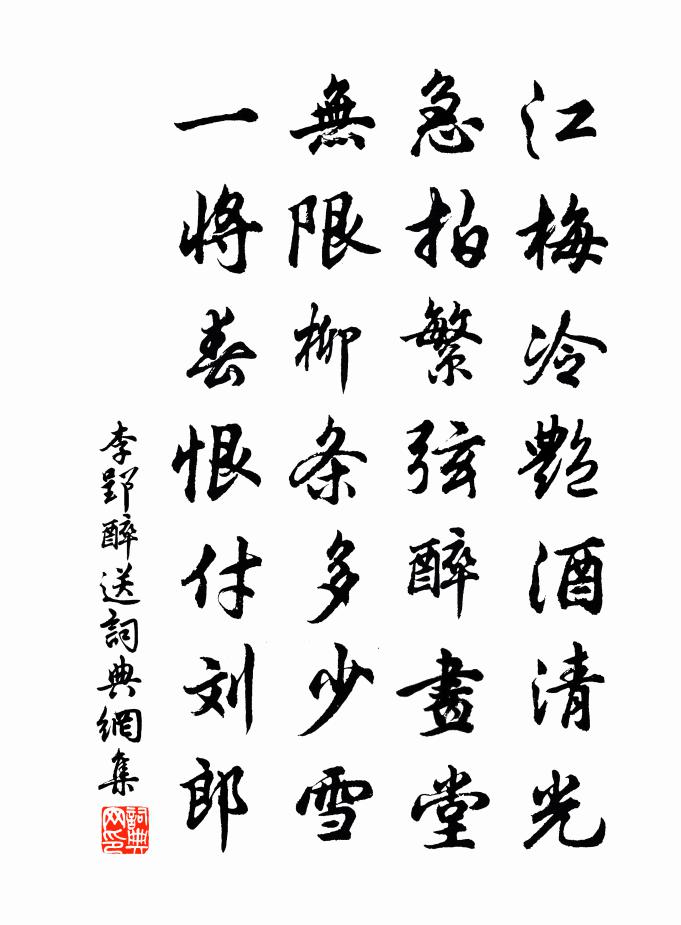 江梅冷艷酒清光
急拍繁弦醉畫堂
無限柳条多少雪
一將春恨付刘郎
李郢醉送詞典網集
詞典网印